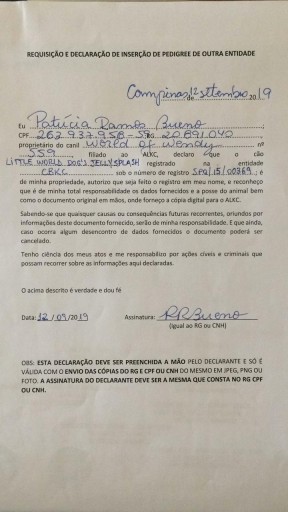 REQUISIÇÃO E DECLARAÇÃO DE INSERÇÃO DE PEDIGREE DE OUTRA ENTIDADE
Campinas, 12 de setembro, 2019
Eu Patrícia Ramos Bueno,
CPF 262.937.958-59, RG 20.891.040,
proprietário do canil World of Wendy nº
559, filiado ao ALKC, declaro que o cão
LITTLE WORLD DOG'S JELLY SPLASH registrado na entidade
CBKC sob o número de registro SPQ/15/00369, é
de minha propriedade, autorizo que seja feito o registro em meu nome, e reconheço
que é de minha total responsabilidade os dados fornecidos e a posse do animal bem
como o documento original em mãos, onde forneço a cópia digital para o ALKC.
Sabendo-se que quaisquer causas ou consequências futuras recorrentes, oriundos por
informações deste documento fornecido, serão de minha responsabilidade. E que ainda,
caso ocorra algum desencontro de dados fornecidos o documento poderá ser
cancelado.
Tenho ciência dos meus atos e me responsabilizo por ações cíveis e criminais que
possam recorrer as informações aqui declaradas.
O acima descrito é verdade e dou fé
Data: 12/09/2019 Assinatura: PRBueno
(Igual ao RG ou CNH)
OBS: ESTA DECLARAÇÃO DEVE SER PREENCHIDA A MÃO PELO DECLARANTE E SÓ É
VÁLIDA COM O ENVIO DAS CÓPIAS DO RG E CPF OU CNH DO MESMO EM JPEG, PNG OU
FOTO. A ASSINATURA DO DECLARANTE DEVE SER A MESMA QUE CONSTA NO RG CPF
OU CNH.